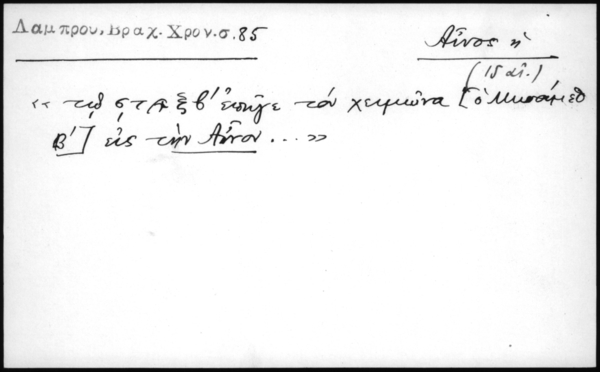 Λαμπρου, Βραχ. Χρον. σ. 85
Αἶνος ἡ
(15 αἰ.)
« τῷ ϛ ϡ ξβ' ἐπῆγε τὸν χειμῶνα [ὁ Μωάμεθ
Β'] εἰς τὴν Αἶνον ... »